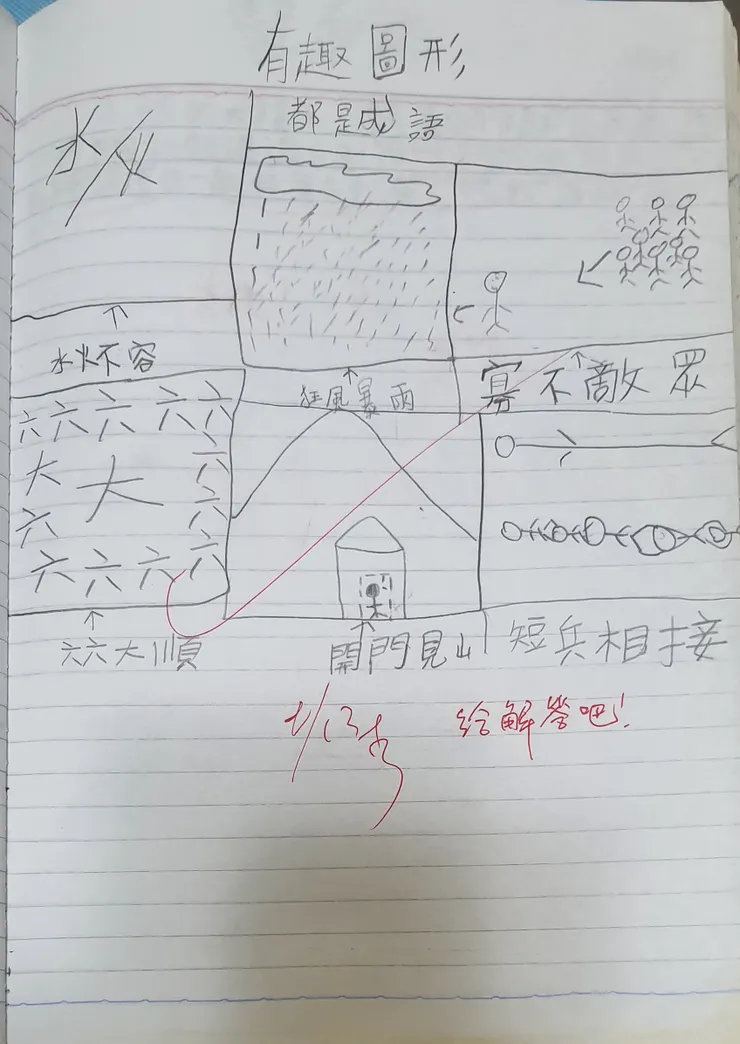 有趣圖形
都是成語
水 火
水火不容
狂風暴雨
寡不敵眾
六 六 六 六 六
大 大 六
六 六
六 六 六 六
六六大順
開門見山
短兵相接
給解答吧!